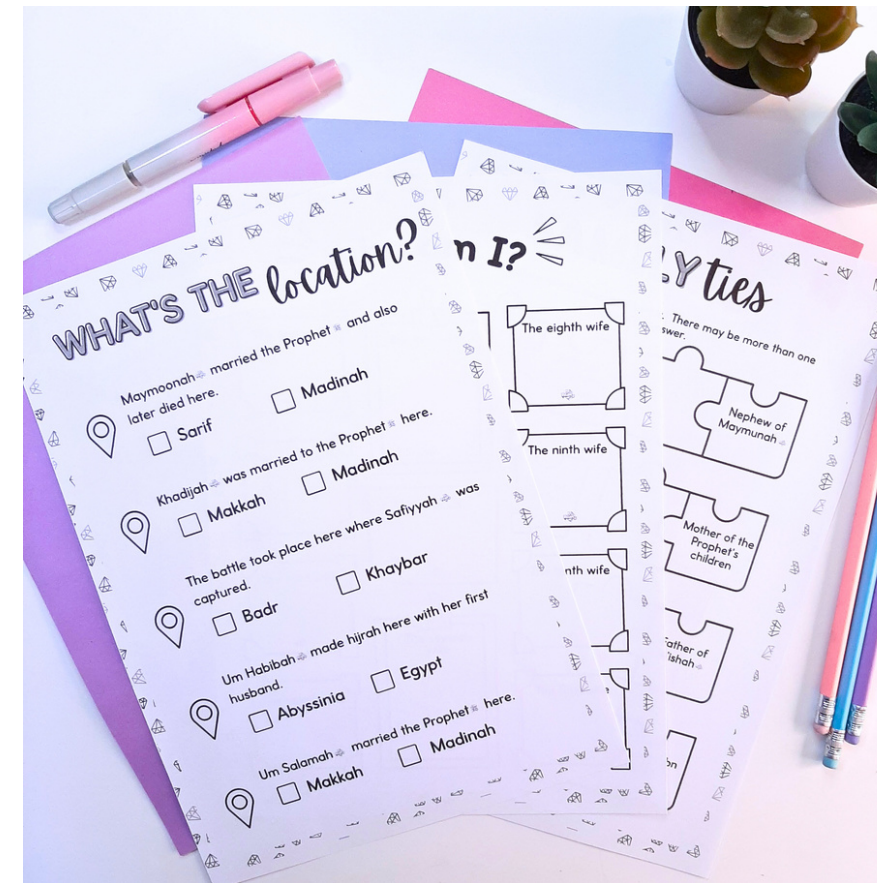 WHAT'S THE location?
Maymoonah married the Prophet ﷺ and also
later died here.
Sarif
Madinah
Khadijah was married to the Prophet ﷺ here.
Makkah
Madinah
The battle took place here where Safiyyah was
captured.
Badr
Khaybar
Um Habibah made hijrah here with her first
husband.
Abyssinia
Egypt
Um Salamah married the Prophet ﷺ here.
Makkah
Madinah
I?
The eighth wife
The ninth wife
wife
Y ties
There may be more than one
Nephew of
Maymunah
Mother of the
Prophet's
children
of